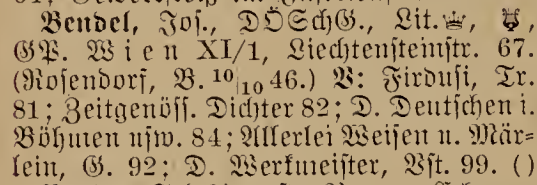 Bendel, Jos., DÖSchG., Lit.
GP. Wien XI/1, Liechtensteinstr. 67.
(Rosendorf, B. 10/10 46.) V: Firdusi, Tr.
81; Zeitgenöss. Dichter 82; D. Deutschen i.
Böhmen usw. 84; Allerlei Weisen u. Mär-
lein, G. 92; D. Werkmeister, Vst. 99. ()